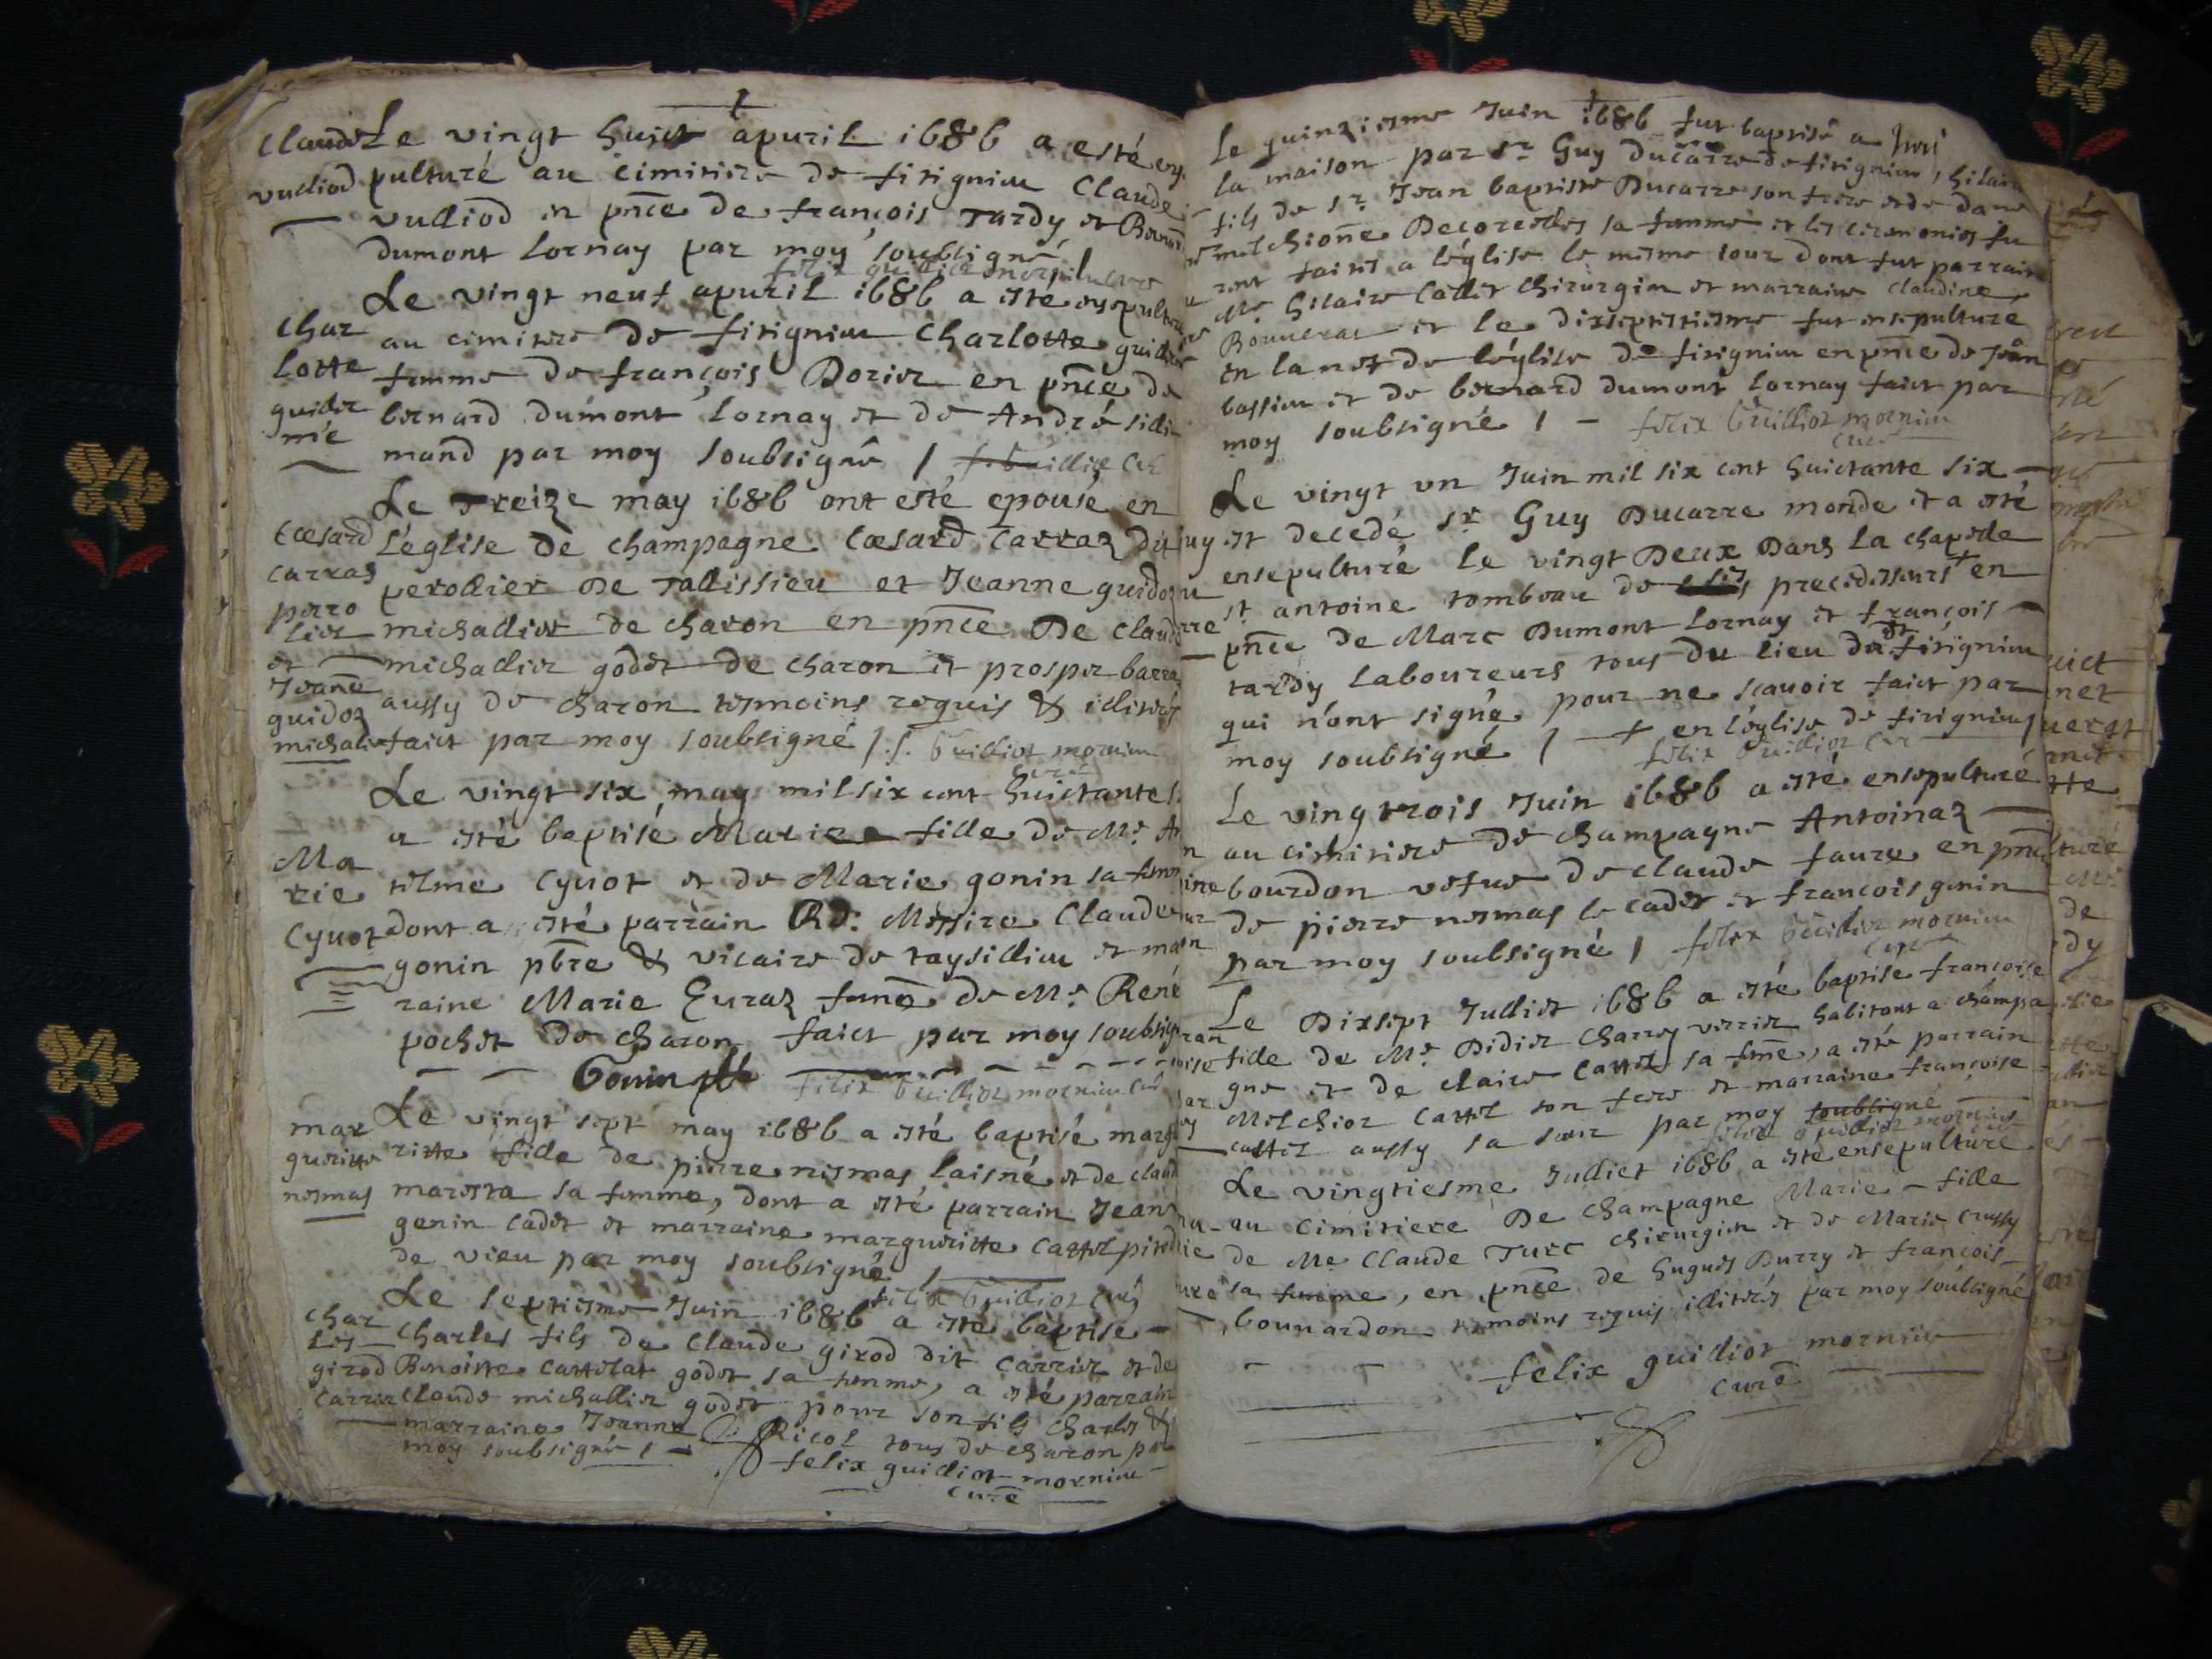 Claude Le vingt huict apuril 1686 a esté ense
vulliod pulturé au cimitiere de fitignieu Claude
vulliod en pñce de françois Tardy et Bernard
dumont Lornay par moy soubsigné
Le vingt neuf apuril 1686 a esté ensepulturé
Char au cimitere de fitignieu Charlotte
lotte femme de françois Dorier en pñce de
bernard dumont Lornay et de André
mand par moy soubsigné /
Le Treize may 1686 ont esté epousé en
Cæsard L'église de Champagne Cæsard Carraz dit
Carraz perollier De Tallissieu et Jeanne guidoz
perro
lier michallier de charon en pñce De Claude
et michallier godet de charon et prosper
Jeane aussy de charon tesmoins requis & illiterés
guidoz
michalier faict par moy soubsigné / f. Guilliot mornieu
curé
Le vingt six may mil six cent huictante
a esté baptisé Marie fille de Me
Ma
rie telme Cyuot et de Marie gonin sa
Cyuot dont a esté parrain Rd: Messire Claude
gonin pbre & vicaire de et mar
raine Marie Euraz fame de Me René
pochet de charon faict par moy soubsigné
Gonin pbre felix Guilliot mornieu curé
mar Le vingt sept may 1686 a esté baptisé margu
gueritte ritte fille de pierre nesmas laisné et de claud
nesmas maretta sa femme, dont a esté parrain Jean
genin cadet et marraine margueritte Cattel
de vieu par moy soubsigné /
felix Guilliot curé
Le septiesme Juin 1686 a esté baptise
Char
les Charles fils de Claude girod dit carrier et de
girod Benoitte Cattelat godet sa femme, a esté parrain
Carrier Claude michallier godet pour son fils Charles &
marraine Jeanne Ricol tous de charon par
moy soubsigné / felix guilliot mornieu
curé
Le quinziesme Juin 1686 fut baptisé a
la maison par sr Guy Ducarre de fitignieu, hilaire
fils de sr Jean baptiste Ducarre son frere et de dame
melchionne Decorcelles sa femme et les ceremonies fu
rent faites a léglise le mesme iour dont fut parrain
Me hilaire Callet Chirurgien et marraine Claudine
et le dixseptiesme fut ensepulture
en la nef de léglise de fitignieu en pñce de Jean
bassieu et de bernard dumont Lornay faict par
moy soubsigné / felix Guilliot mornieu
curé
Le vingt un Juin mil six cent huictante six
est decedé sr Guy Ducarre monde et a esté
ensepulturé le vingt Deux Dans la chapelle
st antoine tombeau de ses precedesseurs + en
pñce de Marc Dumont Lornay et françois
tardy Laboureurs tous du lieu dudt fitignieu
qui nont signé pour ne scavoir faict par
moy soubsigné / + en léglise de fitignieu
felix Guilliot curé
Le vingt trois Juin 1686 a esté ensepulturé
au cimitiere de champagne Antoinaz
bourdon vefue de claude faure en pñce
de pierre nesmas le cadet et francois genin
par moy soubsigné / felix Guilliot mornieu
curé
Le Dixsept Julliet 1686 a esté baptise francoise
fille de Me Didier Charrey verrier habitant a champa
gne et de claire Cattel sa feme, a esté parrain
Melchior Cattel son frere et marraine francoise
Cattel aussy sa soeur par moy soubsigné
felix Guilliot mornieu
Le vingtiesme Julliet 1686 a este ensepulturé
au cimitiere De champagne Marie fille
de Me Claude Turc chirurgien et de Marie crussy
sa femme, en pñce de hugues Durzy et francois
bounardon temoins requis illiterés par moy soubsigné
felix guilliot mornieu
curé